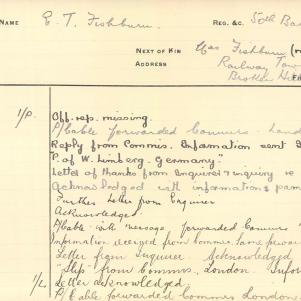 NAME E. T. Fishburn. REG. &c. 50th Ba
NEXT OF KIN Mrs Fishburn (m
ADDRESS Railway Tow
Broken Hi
1/P. Off. rep. missing.
P/Cable forwarded Commrs. Lond
Reply from Commis. Information sent
P. of W. Limberg. Germany."
Letter of thanks from Enquirer & inquiry re
Acknowledged with informations pam
Further Letter from Enquirer
Acknowledged.
P/Cable with message forwarded Commrs
Information received from Commrs. Same forward
Letter from Enquirer. Acknowledged
"Slip" from Comms. London. Infor
1/L. Letter acknowledged.
P/Cable forwarded Commrs London